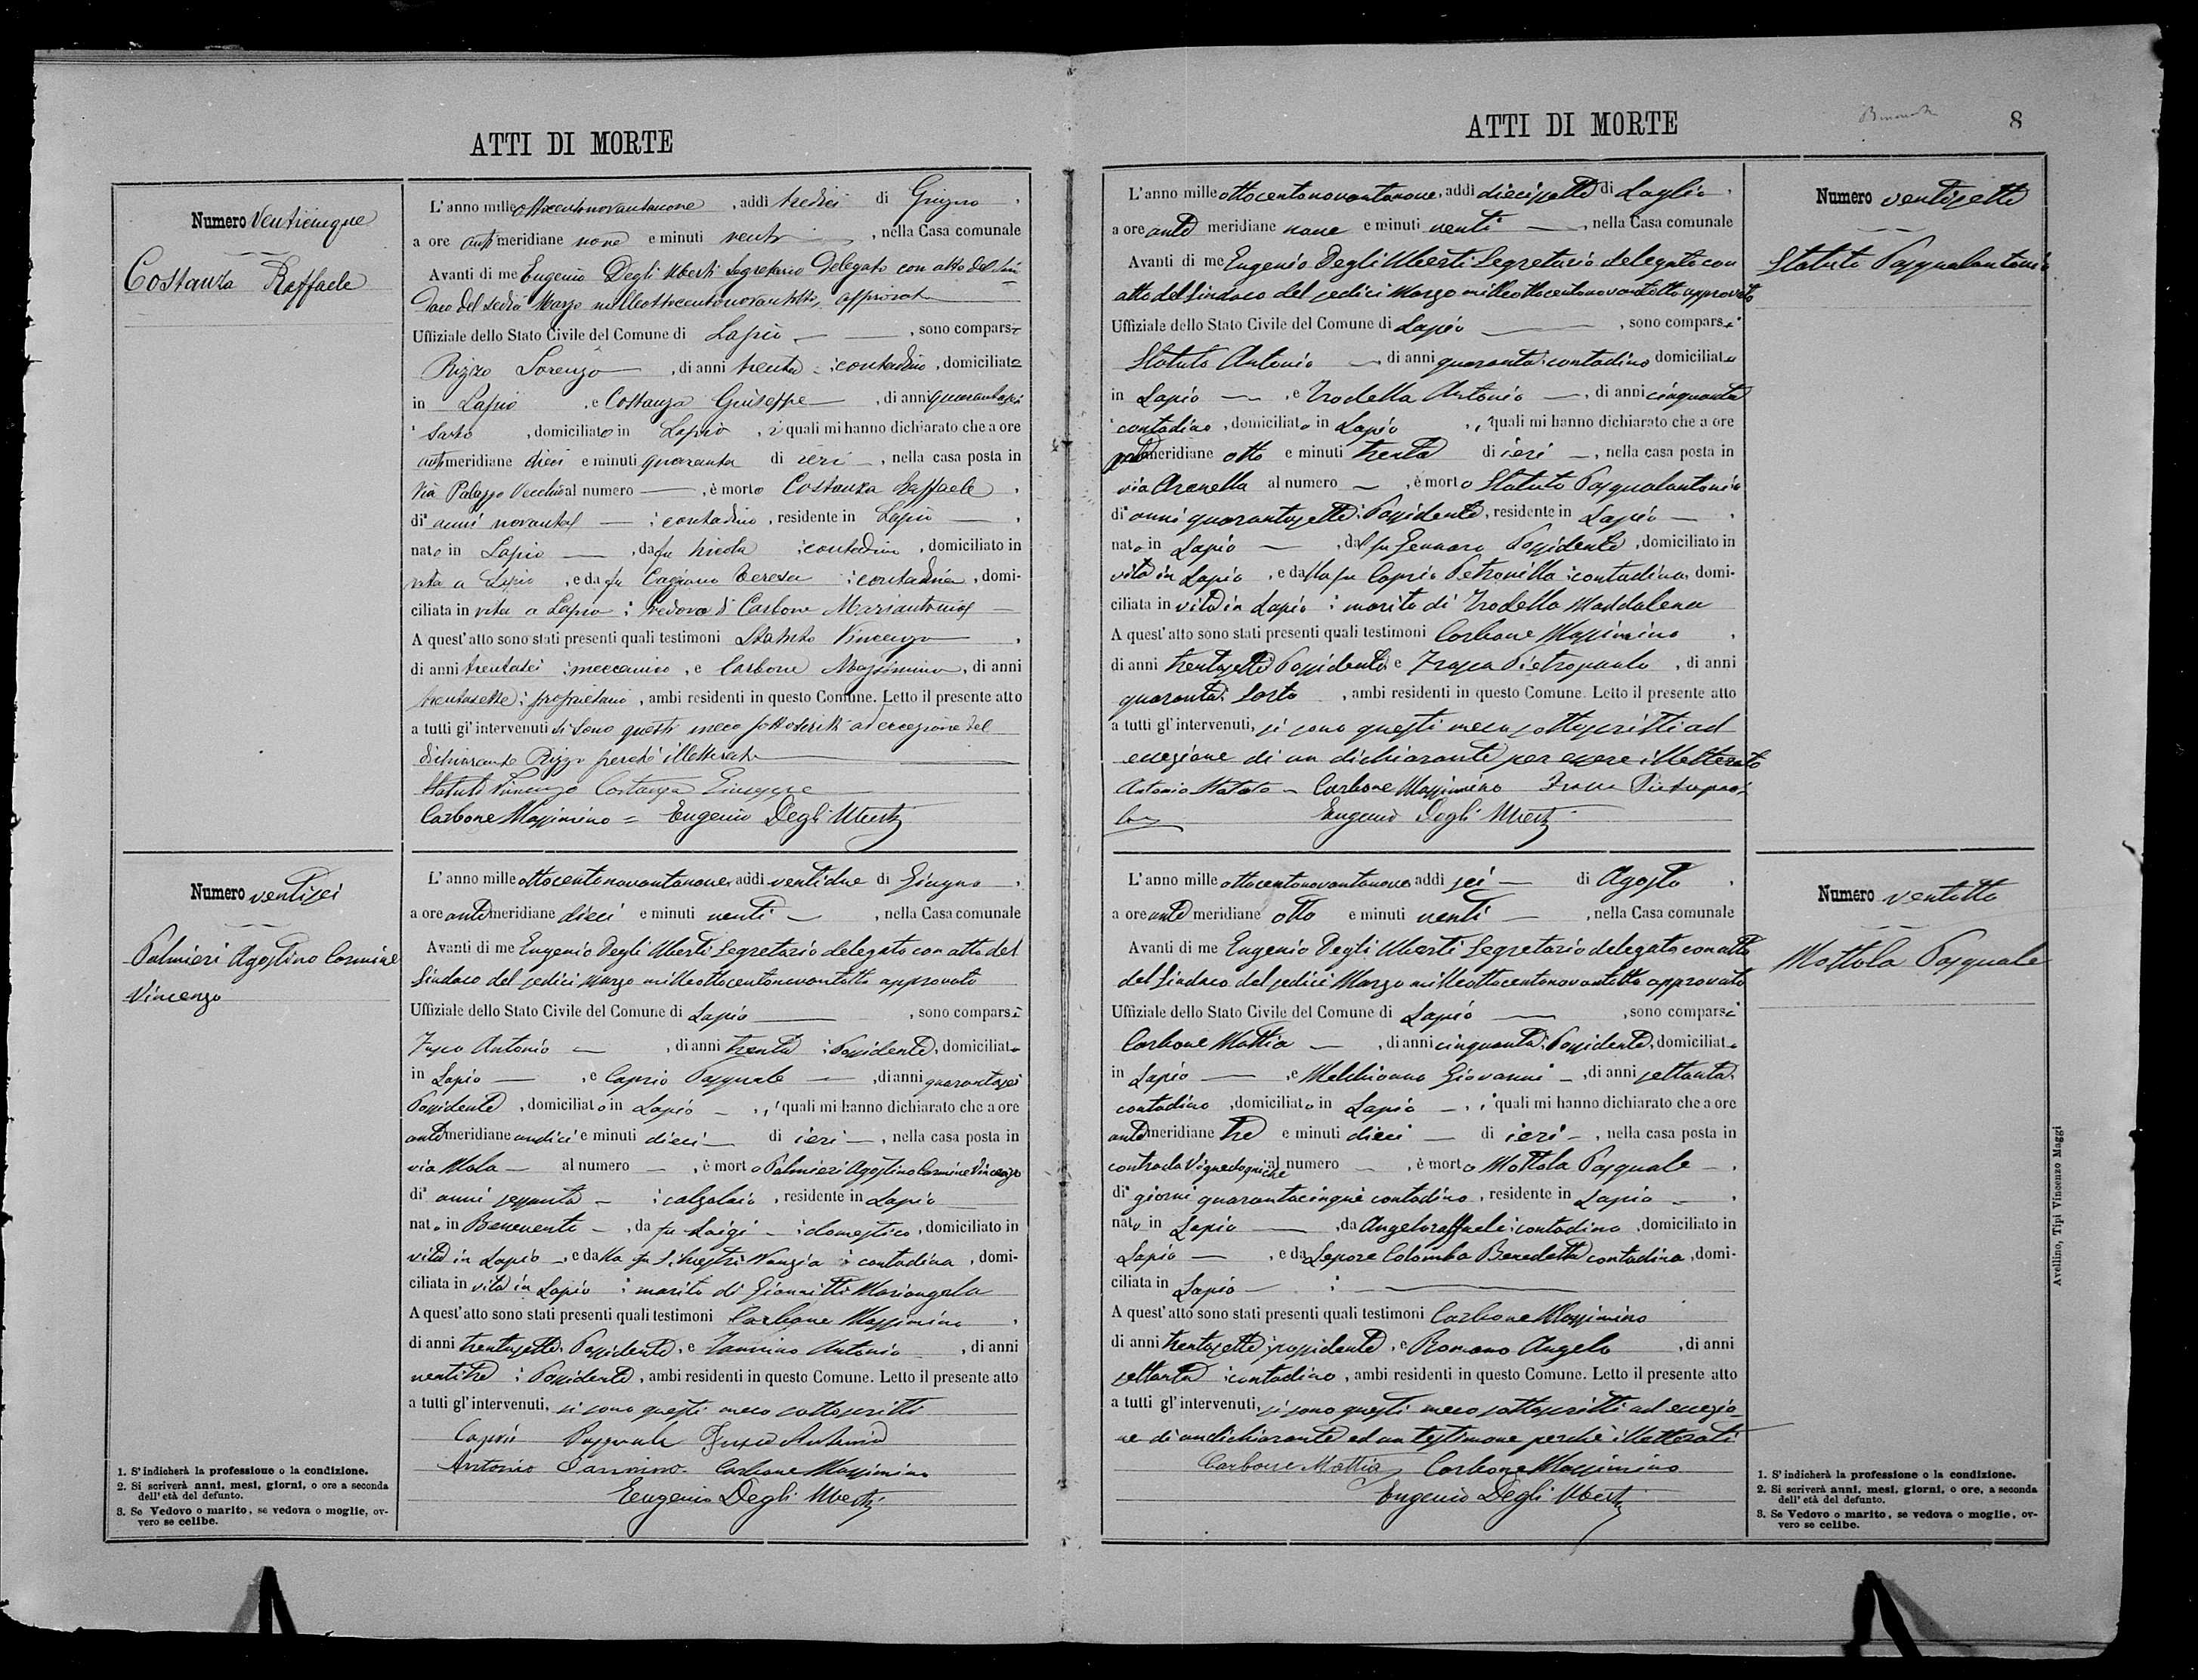 ATTI DI MORTE
Numero Venticinque
Costanza Raffaele
L'anno mille ottocentonovantanove, addì tredici di Giugno,
a ore anti meridiane nove e minuti venti, nella Casa comunale
Avanti di me Eugenio Degli Uberti Segretario Delegato con atto del Sin=
daco del sedici Marzo milleottocentonovantotto, approvato
Uffiziale dello Stato Civile del Comune di Lapio, sono comparsi
Rizzo Lorenzo, di anni trenta, contadino, domiciliato
in Lapio, e Costanza Giuseppe, di anni quarantasei
Sarto, domiciliato in Lapio, i quali mi hanno dichiarato che a ore
anti meridiane dieci e minuti quaranta di ieri, nella casa posta in
Via Palazzo Vecchio al numero, è morto Costanza Raffaele,
di anni novanta, contadino, residente in Lapio,
nato in Lapio, da fu Nicola, contadino, domiciliato in
vita a Lapio, e da fu Cagnano Teresa, contadina, domi-
ciliata in vita a Lapio; vedovo di Carbone Mariantonia
A quest'atto sono stati presenti quali testimoni Statuto Vincenzo,
di anni trentasei, meccanico, e Carbone Massimino, di anni
trentasette, proprietario, ambi residenti in questo Comune. Letto il presente atto
a tutti gl'intervenuti si sono questi meco sottoscritti ad eccezione del
dichiarante Rizzo perché illetterato
Statuto Vincenzo Costanza Giuseppe
Carbone Massimino = Eugenio Degli Uberti
Numero ventisei
Palmieri Agostino Carmine
Vincenzo
L'anno mille ottocentonovantanove, addì ventidue di Giugno,
a ore anti meridiane dieci e minuti venti, nella Casa comunale
Avanti di me Eugenio Degli Uberti Segretario delegato con atto del
Sindaco del sedici Marzo milleottocentonovantotto approvato
Uffiziale dello Stato Civile del Comune di Lapio, sono comparsi
Antonio, di anni trenta, Possidente, domiciliato
in Lapio, e Caprio Pasquale, di anni quarantasei
Possidente, domiciliato in Lapio, i quali mi hanno dichiarato che a ore
anti meridiane undici e minuti dieci di ieri, nella casa posta in
via Mala al numero, è morto Palmieri Agostino Carmine Vincenzo
di anni sessanta, calzolaio, residente in Lapio
nato in Benevento, da fu Luigi, domestico, domiciliato in
vita in Lapio, e dalla fu Silvestri Nunzia, contadina, domi-
ciliata in vita in Lapio; marito di Giannitti Mariangela
A quest'atto sono stati presenti quali testimoni Carbone Massimino,
di anni trentasette, Possidente, e Iannino Antonio, di anni
ventitre, Possidente, ambi residenti in questo Comune. Letto il presente atto
a tutti gl'intervenuti, si sono questi meco sottoscritti
Caprio Pasquale Antonio
Antonio Iannino Carbone Massimino
Eugenio Degli Uberti
1. S'indicherà la professione o la condizione.
2. Si scriverà anni, mesi, giorni, o ore a seconda
dell'età del defunto.
3. Se Vedovo o marito, se vedova o moglie, ov-
vero se celibe.
ATTI DI MORTE
8
L'anno mille ottocentonovantanove, addì diecisette di Luglio,
a ore ante meridiane nove e minuti venti, nella Casa comunale
Avanti di me Eugenio Degli Uberti Segretario delegato con
atto del Sindaco del sedici Marzo milleottocentonovantotto approvato
Uffiziale dello Stato Civile del Comune di Lapio, sono comparsi
Statuto Antonio, di anni quaranta, contadino domiciliato
in Lapio, e Trodella Antonio, di anni cinquanta
contadino, domiciliato in Lapio, i quali mi hanno dichiarato che a ore
pomeridiane otto e minuti trenta di ieri, nella casa posta in
via Arenella al numero, è morto Statuto Pasqualantonio
di anni quarantasette, Possidente, residente in Lapio,
nato in Lapio, dal fu Gennaro Possidente, domiciliato in
vita in Lapio, e dalla fu Caprio Petronilla, contadina, domi-
ciliata in vita in Lapio; marito di Trodella Maddalena
A quest'atto sono stati presenti quali testimoni Carbone Massimino,
di anni trentasette Possidente e Pietropaolo, di anni
quaranta, Sarto, ambi residenti in questo Comune. Letto il presente atto
a tutti gl'intervenuti, si sono questi meco sottoscritti ad
eccezione di un dichiarante per essere illetterato
Antonio Statuto Carbone Massimino
Eugenio Degli Uberti
Numero ventisette
Statuto Pasqualantonio
L'anno mille ottocentonovantanove, addì sei di Agosto,
a ore ante meridiane otto e minuti venti, nella Casa comunale
Avanti di me Eugenio Degli Uberti Segretario delegato con atto
del Sindaco del sedici Marzo milleottocentonovantotto approvato
Uffiziale dello Stato Civile del Comune di Lapio, sono comparsi
Carbone Mattia, di anni cinquanta, Possidente, domiciliato
in Lapio, e Melchionna Giovanni, di anni settanta
contadino, domiciliato in Lapio, i quali mi hanno dichiarato che a ore
ante meridiane tre e minuti dieci di ieri, nella casa posta in
contrada al numero, è morto Mottola Pasquale,
di giorni quarantacinque contadino, residente in Lapio,
nato in Lapio, da Angeloraffaele, contadino, domiciliato in
Lapio, e da Lepore Colomba Benedetta contadina, domi-
ciliata in Lapio;
A quest'atto sono stati presenti quali testimoni Carbone Massimino
di anni trentasette, possidente, e Romano Angelo, di anni
settanta, contadino, ambi residenti in questo Comune. Letto il presente atto
a tutti gl'intervenuti, si sono questi meco sottoscritti ad eccezio-
ne di un dichiarante ed un testimone perchè illetterati
Carbone Mattia Carbone Massimino
Eugenio Degli Uberti
Numero ventotto
Mottola Pasquale
1. S'indicherà la professione o la condizione.
2. Si scriverà anni, mesi, giorni, o ore, a seconda
dell'età del defunto.
3. Se Vedovo o marito, se vedova o moglie, ov-
vero se celibe.
Avellino, Tipi Vincenzo Maggi